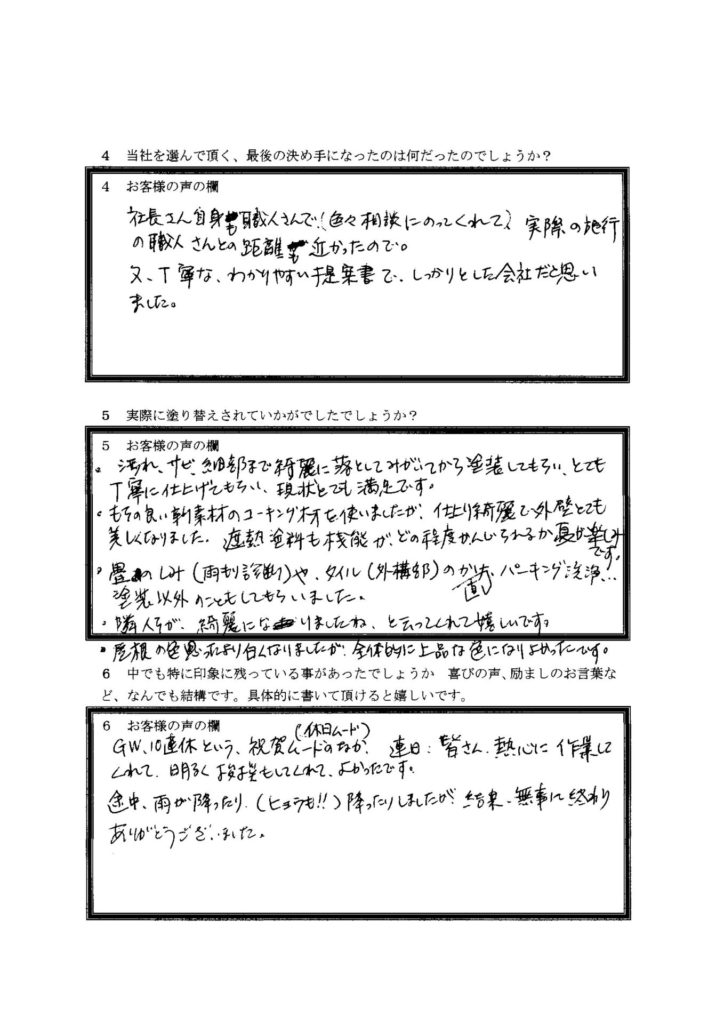 4 当社を選んで頂く、最後の決め手になったのは何だったのでしょうか？
4 お客様の声の欄
社長さん自身も職人さんで、色々相談にのってくれて、実際の施行
の職人さんとの距離も近かったので。
又、丁寧な、わかりやすい提案書で、しっかりとした会社だと思い
ました。
5 実際に塗り替えされていかがでしたでしょうか？
5 お客様の声の欄
• 汚れ、サビ、細部まで綺麗に落としてみがいてから塗装してもらい、とても
丁寧に仕上げてもらい、現状とても満足です。
• もちの良い新素材のコーキング材を使いましたが、仕上り綺麗で外壁とても
美しくなりました。遮熱塗料も機能が、どの程度かんじられるか夏が楽しみ
です。
• 畳のしみ（雨もり診断）や、タイル（外構部）の 直し、パーキング洗浄…
塗装以外のこともしてもらいました。
• 隣人が、綺麗になりましたね、と云ってくれて嬉しいです。
• 屋根の色思ったより白くなりましたが、全体的に上品な色になりよかったです。
6 中でも特に印象に残っている事があったでしょうか 喜びの声、励ましのお言葉な
ど、なんでも結構です。具体的に書いて頂けると嬉しいです。
6 お客様の声の欄
（休日ムード）
GW、10連休という、祝賀ムードのなか、連日、皆さん、熱心に作業して
くれて、明るく挨拶もしてくれて、よかったです。
途中、雨が降ったり、（ヒョウも!!）降ったりしましたが、結果、無事に終わり
ありがとうございました。